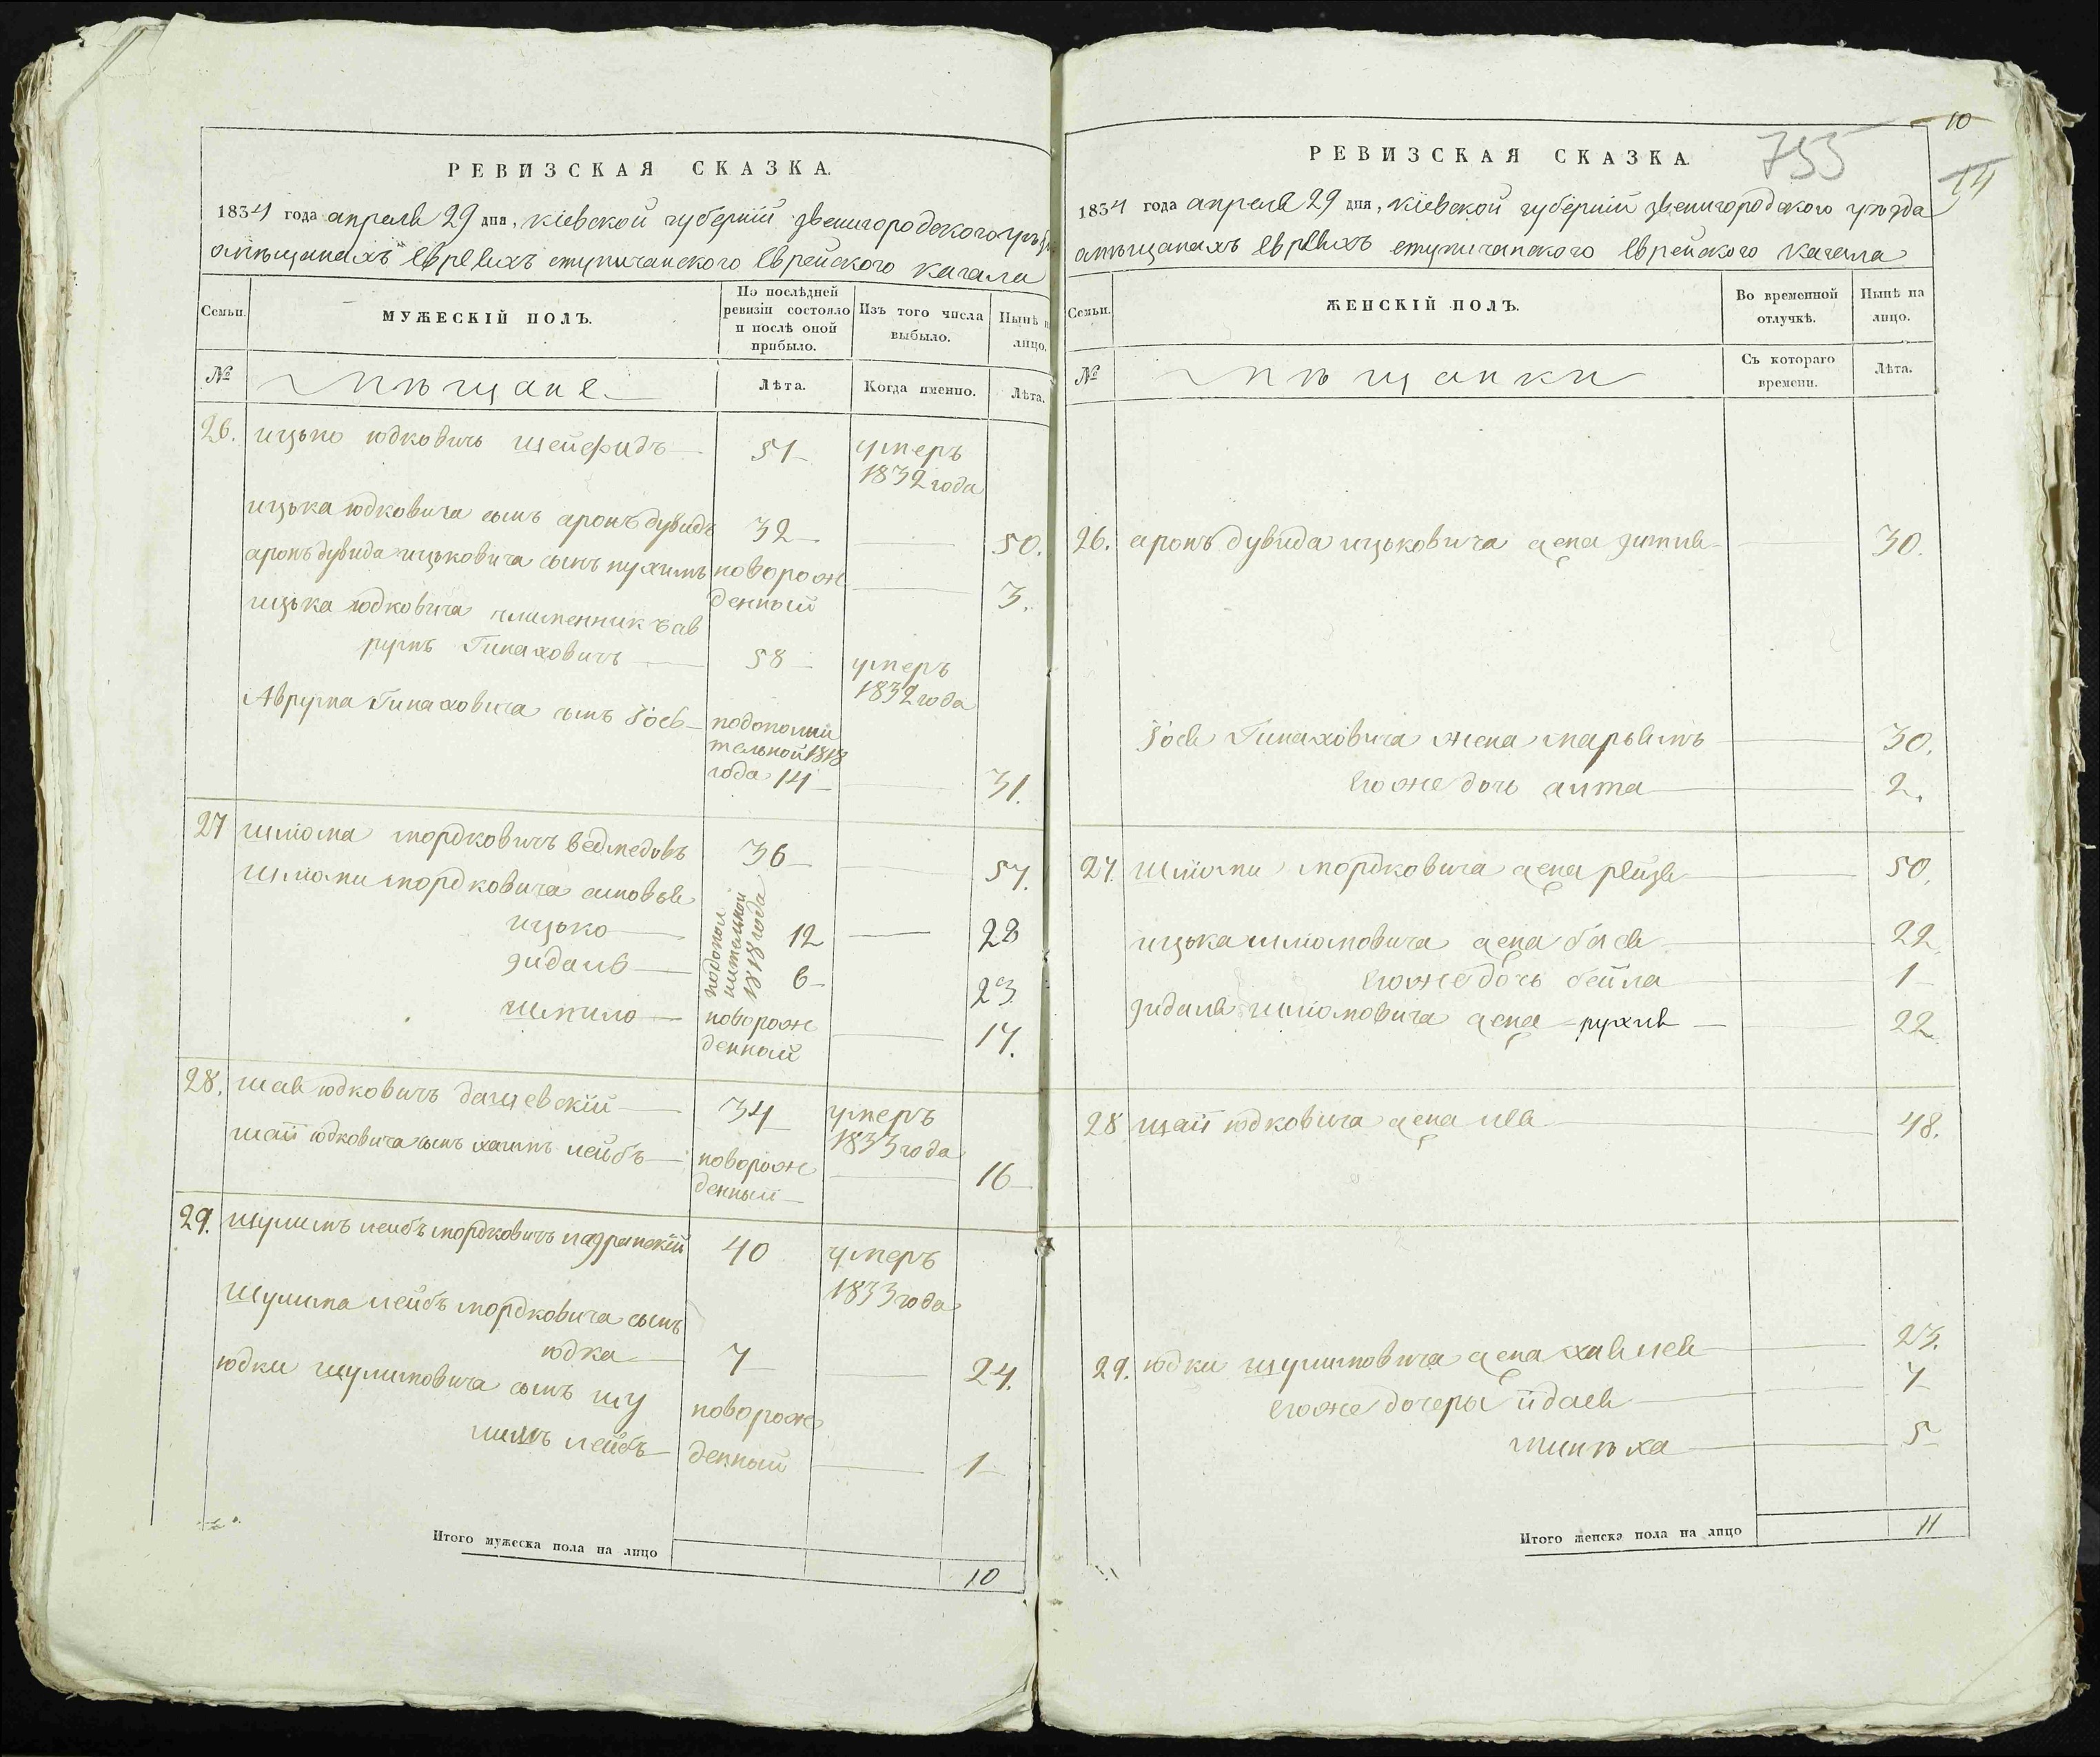 РЕВИЗСКАЯ СКАЗКА.
1834 года апреля 29 дня, кіевской губерніи звенигородского
омѣщанахъ евреяхъ еврейского кагала
Семьи.
МУЖЕСКІЙ ПОЛЪ.
По послѣдней ревизіи состояло и послѣ оной прибыло.
Изъ того числа выбыло.
Нынѣ на лицо.
№
мѣщане
Лѣта.
Когда именно.
Лѣта.
26. ицько юдковичъ шейфидъ 51 умеръ
1832 года
ицька юдковича сынъ аронъ дувидъ 32 50.
аронъ дувида ицьковича сынъ нухимъ новорож
денный 3.
ицька юдковича племенникъ ав
румъ Гинаховичъ 58 умеръ
1832 года
Аврума Гинаховича сынъ Іось подополни
тельной 1818
года 14 31.
27 шліома мордковичъ ведмедовъ 36 57.
шліоми мордковича сыновья
подополнительной 1818 года
ицько 12 28
зидаль 6 23
шмило новорож
денный 17.
28. шая юдковичъ дашевскій 34 умеръ
1833 года
шаи юдковича сынъ хаимъ лейбъ новорож
денный 16
29. шулимъ лейбъ мордковичъ 40 умеръ
1833 года
Шулима лейбъ мордковича сынъ
юдка 7 24.
юдки шулимовича сынъ шу
лимъ лейбъ новорож
денный 1
Итого мужеска пола на лицо
10
10
755
14
РЕВИЗСКАЯ СКАЗКА.
1834 года апреля 29 дня, кіевской губерніи звенигородского уѣзда
омѣщанахъ евреяхъ еврейского кагала
Семьи.
ЖЕНСКІЙ ПОЛЪ.
Во временной отлучкѣ.
Нынѣ на лицо.
№
мѣщанки
Съ котораго времени.
Лѣта.
26. аронъ дувида ицьковича жена 30.
Іося Гинаховича жена марьямъ 30.
егоже дочь алта 2.
27. Шліоми мордковича жена рейзя 50.
ицька шліомовича жена бася 22
егоже дочь бейла 1
зидаля шліомовича жена рухля 22
28 шаи юдковича жена лея 48.
29. юдки шулимовича жена 23.
егоже дочеры идася 7
миниха 5
Итого женска пола на лицо
11